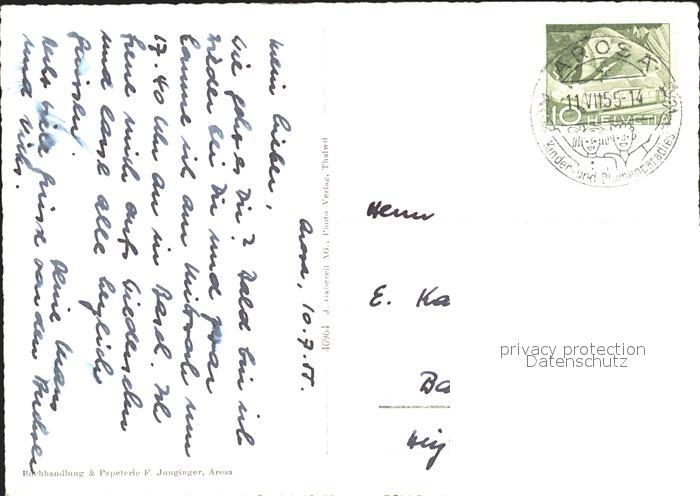 Arosa, 10.7.55.
Mein Lieber,
wie geht es Dir? Bald bin ich
wieder bei Dir und zwar
komme ich am Mittwoch um
17.40 Uhr an in Basel. Ich
freue mich aufs Wiedersehen
und lasse alle herzlich
grüssen.
Deine
viele Grüsse von den
und
Herrn
E. Ka
Ba
AROSA
11.VII.55-14
Kinder- und Blumenparadies
10 HELVETIA
privacy protection
Datenschutz
40964 J. Gaberell AG., Photo Verlag, Thalwil
Buchhandlung & Papeterie F. Junginger, Arosa